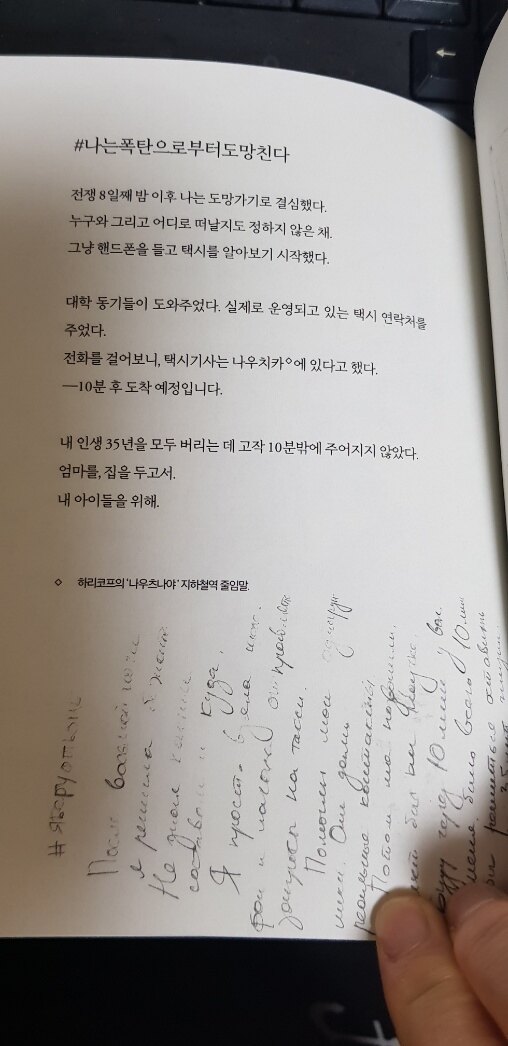 #나는폭탄으로부터도망친다
전쟁 8일째 밤 이후 나는 도망가기로 결심했다.
누구와 그리고 어디로 떠날지도 정하지 않은 채.
그냥 핸드폰을 들고 택시를 알아보기 시작했다.
대학 동기들이 도와주었다. 실제로 운영되고 있는 택시 연락처를
주었다.
전화를 걸어보니, 택시기사는 나우치카◇에 있다고 했다.
—10분 후 도착 예정입니다.
내 인생 35년을 모두 버리는 데 고작 10분밖에 주어지지 않았다.
엄마를, 집을 두고서.
내 아이들을 위해.
◇ 하리코프의 '나우츠나야' 지하철역 줄임말.
После восьмой ночи
я решила бежать
Не зная
с и куда.
Я просто взяла
и начала отправлять
запросы на такси.
Помогли мои
Они дали
реальные контакты
Потом мы позвонили.
был на Научке.
Буду через 10 мин у вас
меня было всего 10 мин
решиться оставить